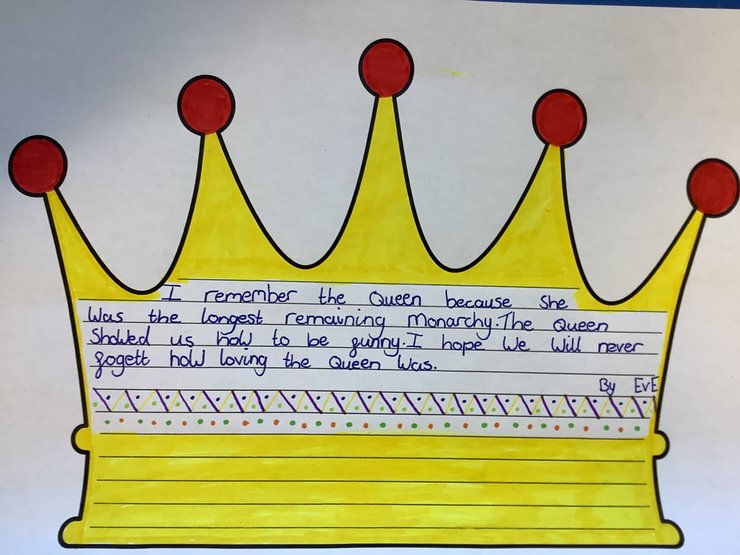 I remember the Queen because She
Was the longest remaining Monarchy. The Queen
Showed us how to be funny. I hope We Will never
fogett how loving the Queen Was.
By EvE